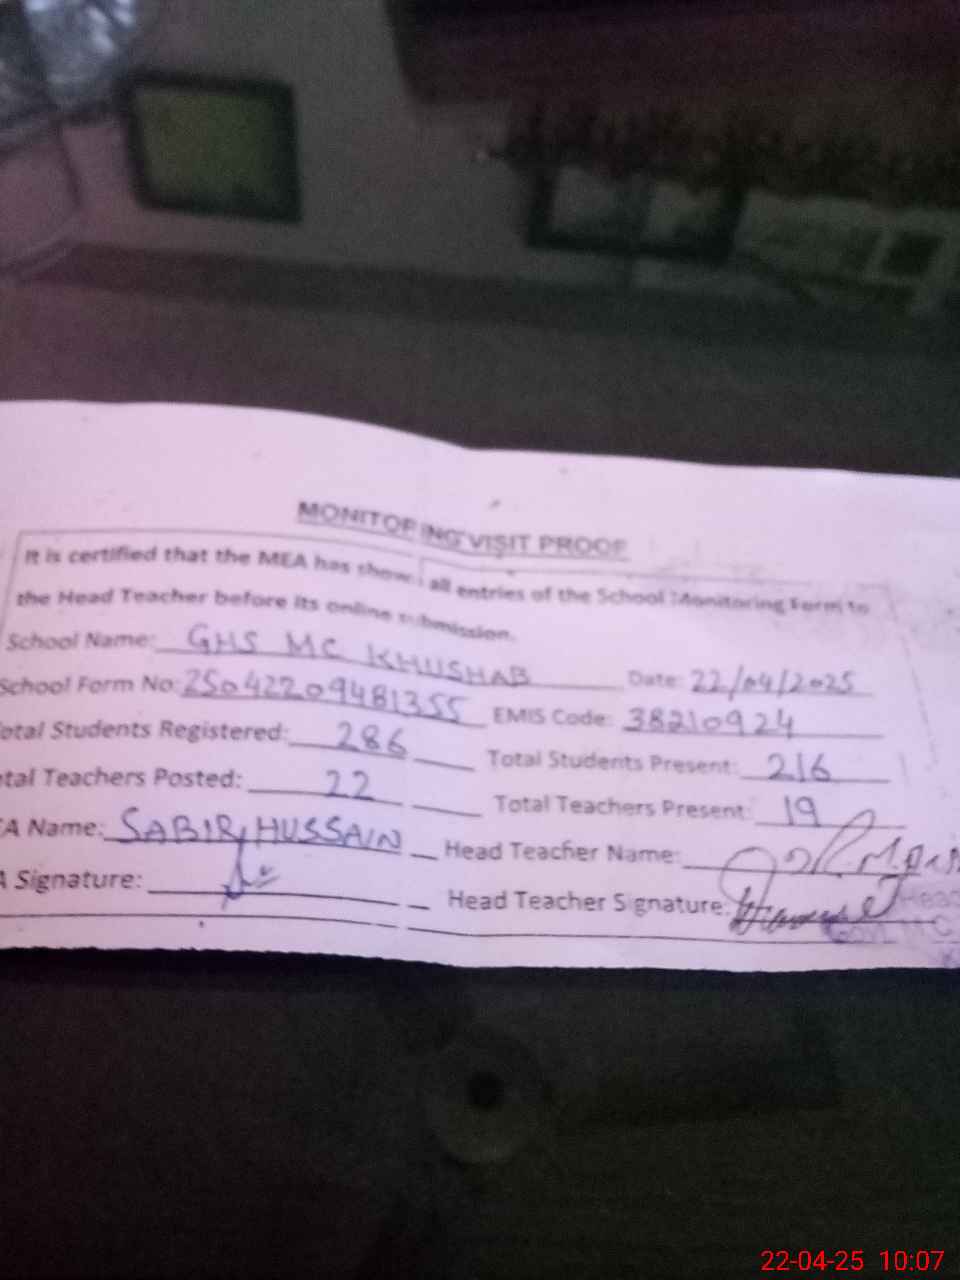 MONITORING VISIT PROOF
It is certified that the MEA has shown all entries of the School Monitoring Form to
the Head Teacher before its online submission.
School Name: GHS MC KHUSHAB Date: 22/04/2025
School Form No: 25042209481355 EMIS Code: 38210924
otal Students Registered: 286 Total Students Present: 216
tal Teachers Posted: 22 Total Teachers Present: 19
EA Name: SABIR HUSSAIN Head Teacher Name:
A Signature: Head Teacher Signature:
Head
Govt. MC
22-04-25 10:07